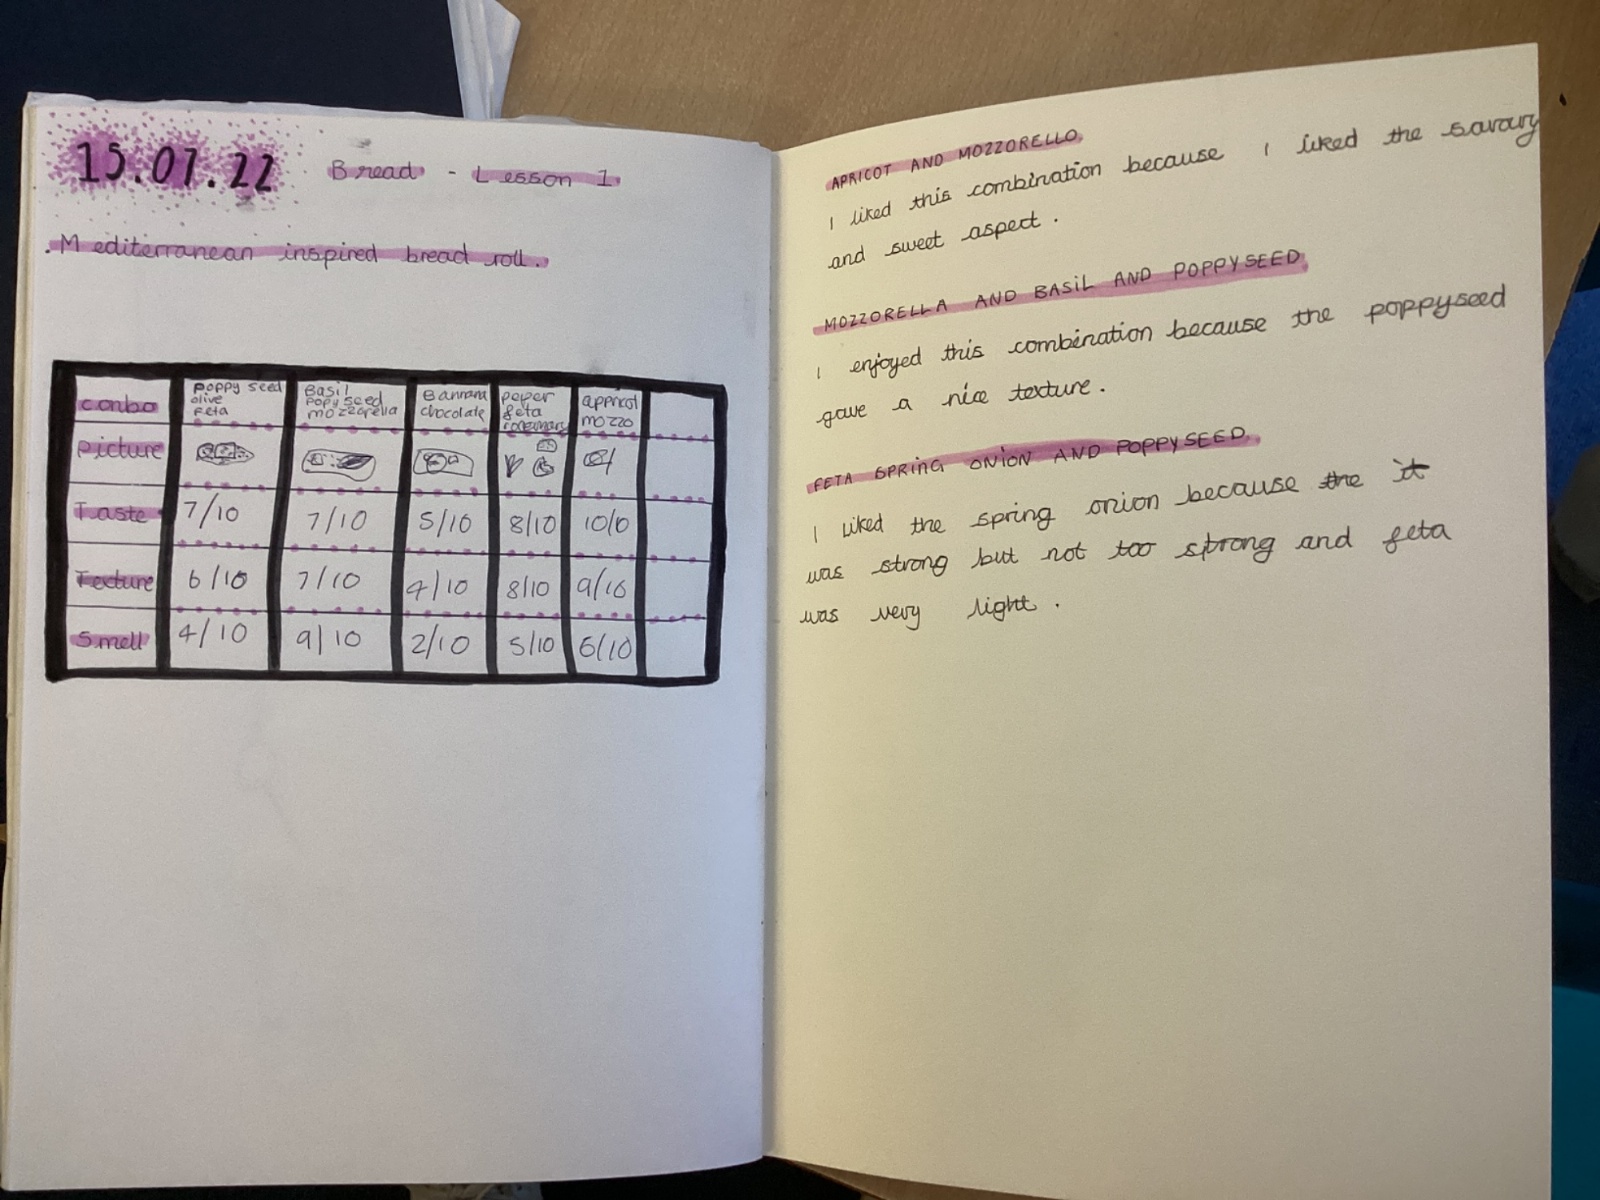 15.07.22 Bread - Lesson 1
. Mediterranean inspired bread roll.
combo
poppy seed
olive
feta
Basil
popy seed
mozzarella
Bannana
chocolate
peper
feta
appricot
mozzo
picture
Taste 7/10 7/10 5/10 8/10 10/0
Texture 6/10 7/10 4/10 8/10 9/10
Smell 4/10 9/10 2/10 5/10 6/10
APRICOT AND MOZZORELLO
I liked this combination because I liked the savoury
and sweet aspect.
MOZZORELLA AND BASIL AND POPPYSEED
I enjoyed this combination because the poppyseed
gave a nice texture.
FETA SPRING ONION AND POPPYSEED.
I liked the spring onion because the it
was strong but not too strong and feta
was very light.